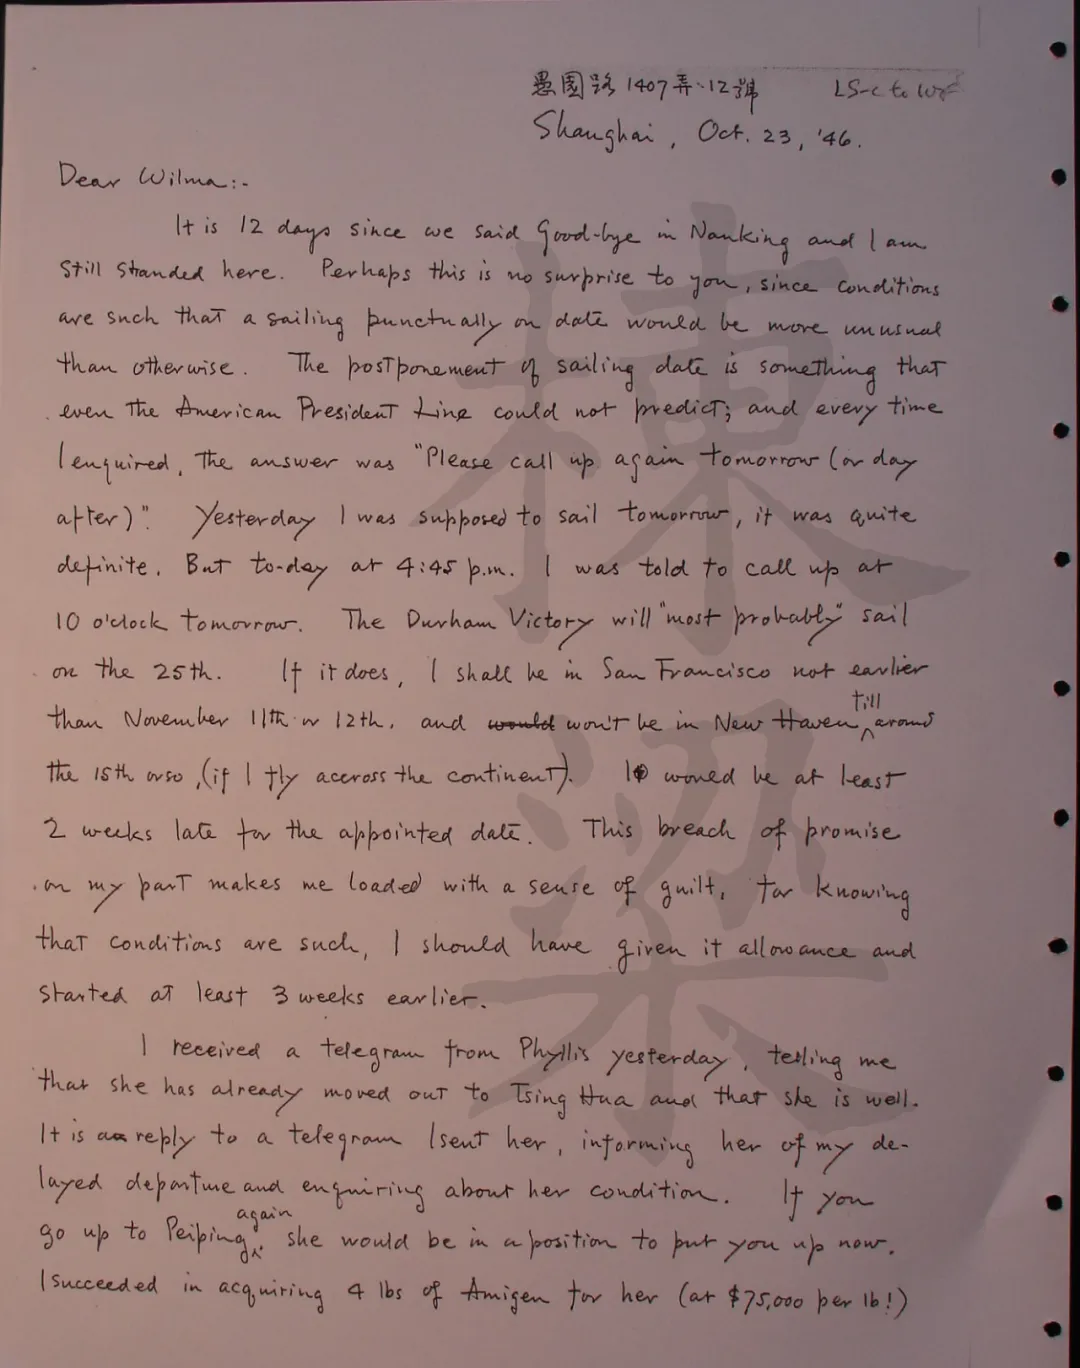 愚園路 1407弄·12號 LS-c to WF
Shanghai, Oct. 23, '46.
Dear Wilma:-
It is 12 days since we said Good-bye in Nanking and I am
still stranded here. Perhaps this is no surprise to you, since conditions
are such that a sailing punctually on date would be more unusual
than otherwise. The postponement of sailing date is something that
even the American President Line could not predict; and every time
I enquired, the answer was "Please call up again tomorrow (or day
after)". Yesterday I was supposed to sail tomorrow, it was quite
definite. But to-day at 4:45 p.m. I was told to call up at
10 o'clock tomorrow. The Durham Victory will "most probably" sail
on the 25th. If it does, I shall be in San Francisco not earlier
than November 11th or 12th. and would won't be in New Haven till around
the 15th or so, (if I fly accross the continent). I would be at least
2 weeks late for the appointed date. This breach of promise
on my part makes me loaded with a sense of guilt, for knowing
that conditions are such, I should have given it allowance and
started at least 3 weeks earlier.
I received a telegram from Phyllis yesterday, telling me
that she has already moved out to Tsing Hua and that she is well.
It is a reply to a telegram I sent her, informing her of my de-
layed departure and enquiring about her condition. If you
go up to Peiping again, she would be in a position to put you up now.
I succeeded in acquiring 4 lbs of Amigen for her (at $75,000 per lb!)
棟
梁